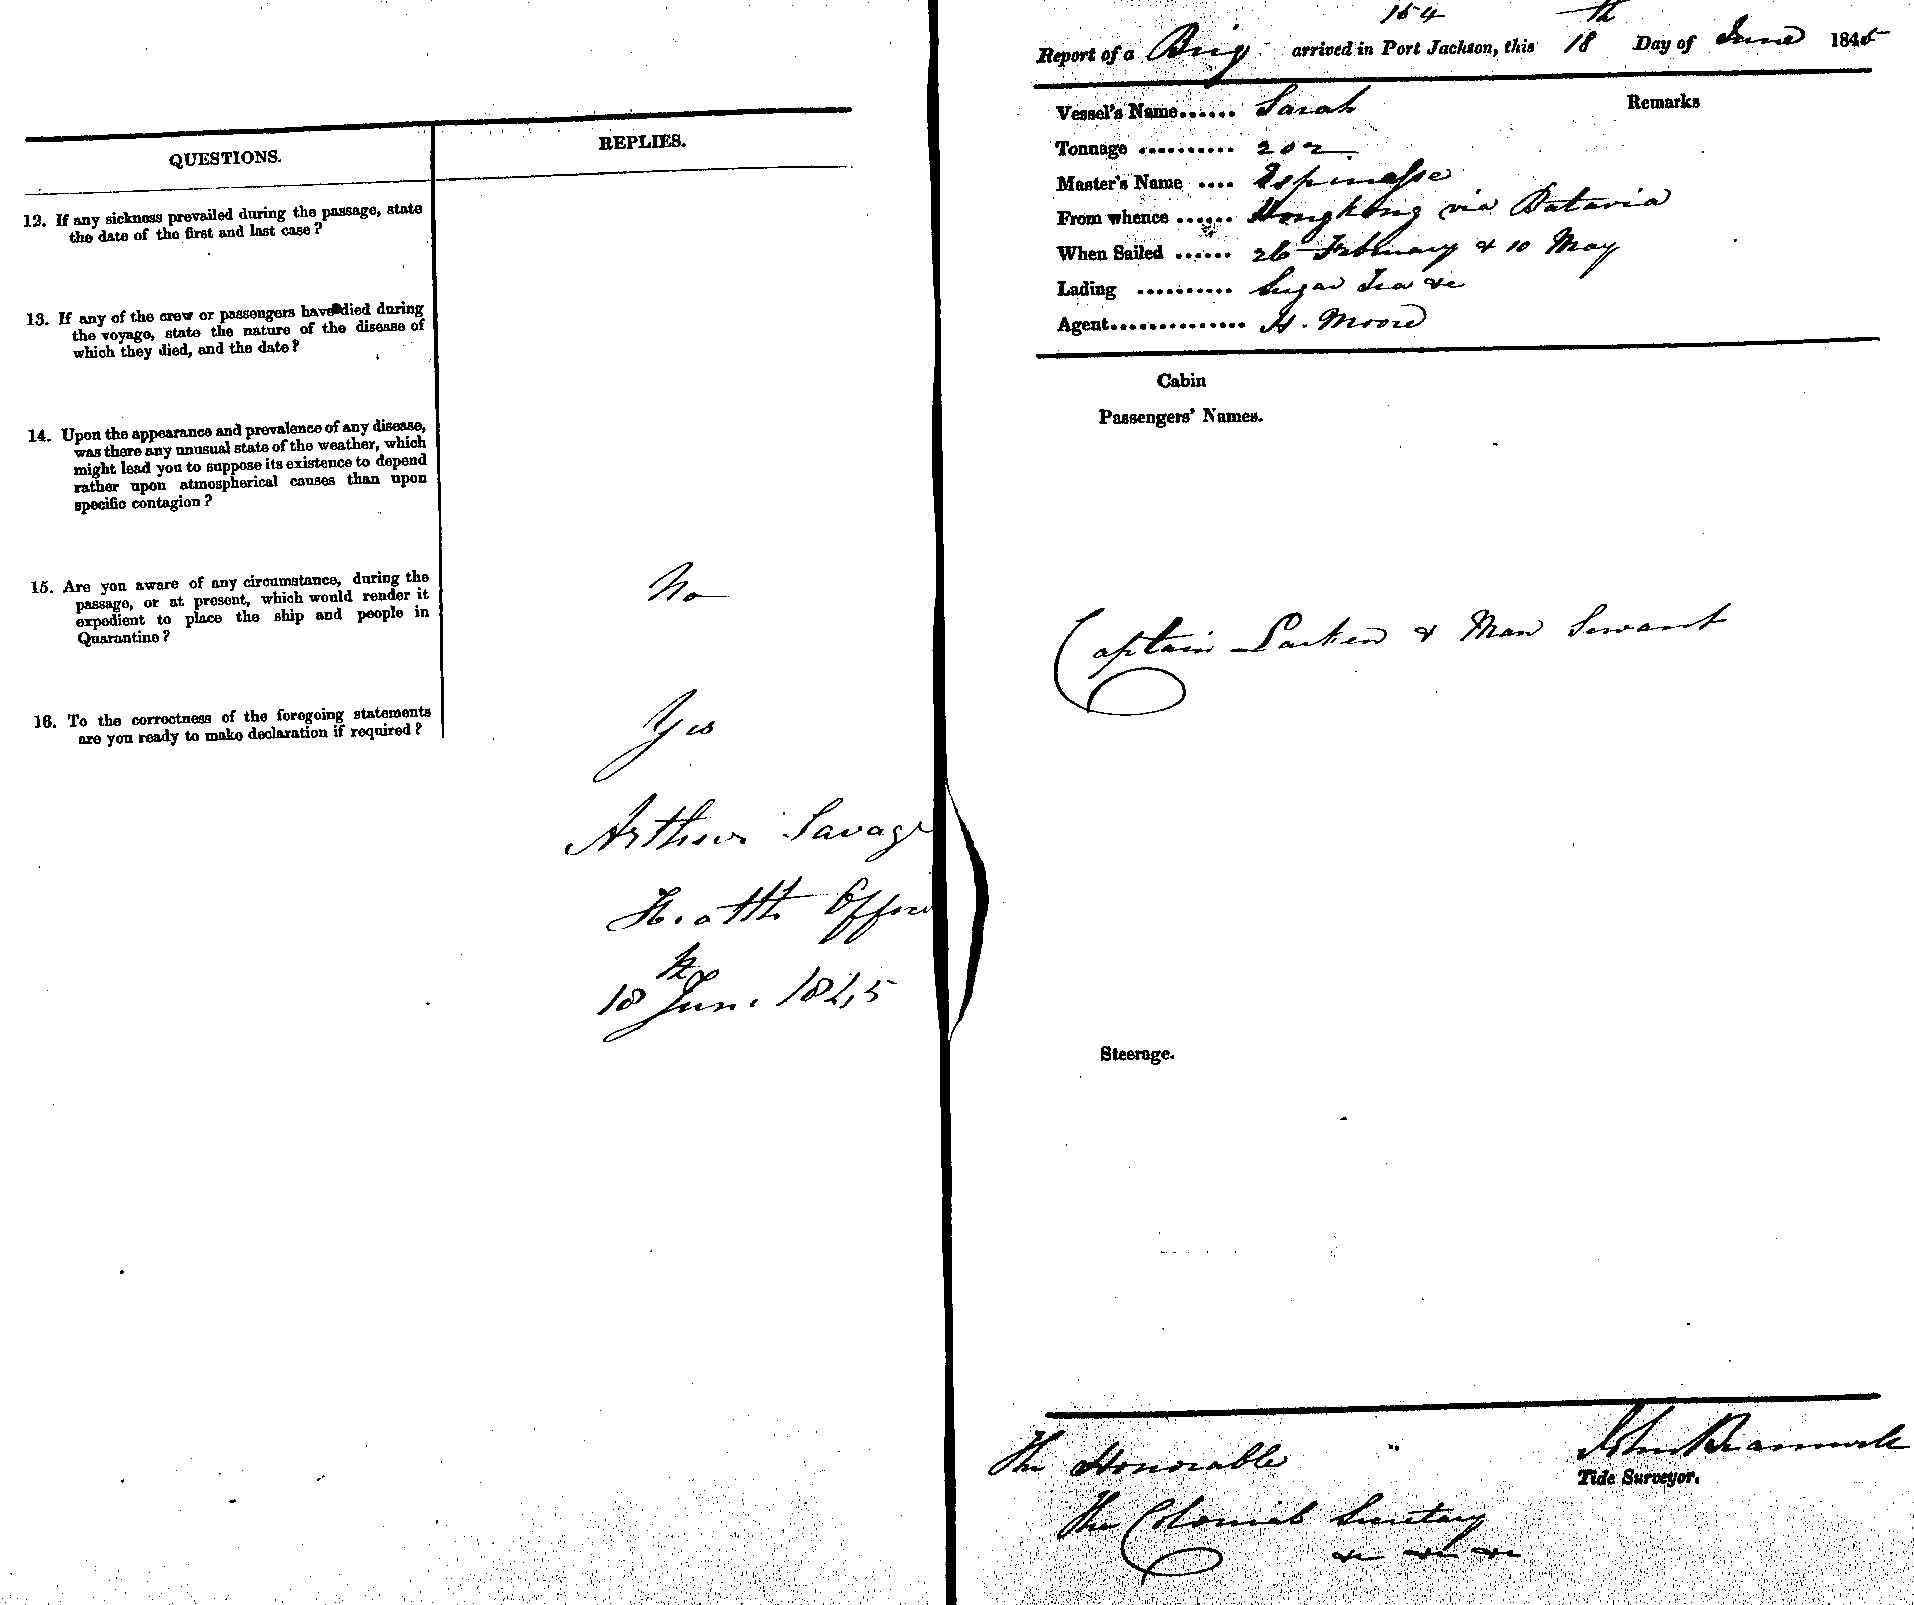 QUESTIONS.
REPLIES.
12. If any sickness prevailed during the passage, state
the date of the first and last case ?
13. If any of the crew or passengers have died during
the voyage, state the nature of the disease of
which they died, and the date ?
14. Upon the appearance and prevalence of any disease,
was there any unusual state of the weather, which
might lead you to suppose its existence to depend
rather upon atmospherical causes than upon
specific contagion ?
15. Are you aware of any circumstance, during the
passage, or at present, which would render it
expedient to place the ship and people in
Quarantine ?
No
16. To the correctness of the foregoing statements
are you ready to make declaration if required ?
Yes
Arthur Savage
Health Officer
18th June 1845
154
Report of a Brig arrived in Port Jackson, this 18th Day of June 1845
Vessel's Name...... Sarah
Remarks
Tonnage .......... 202
Master's Name .... Espinasse
From whence ...... Hongkong via Batavia
When Sailed ...... 26 February & 10 May
Lading .......... Sugar Tea &c
Agent.............. H. Moore
Cabin
Passengers' Names.
Captain Larken & Man Servant
Steerage.
The Honorable
The Colonial Secretary
&c &c &c
John Bramwell
Tide Surveyor.